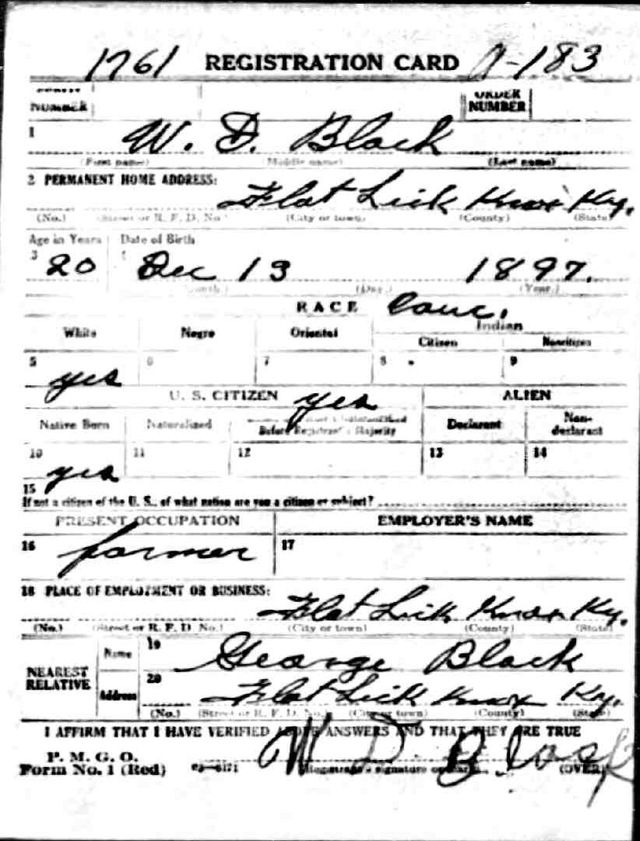 1761 REGISTRATION CARD A-183
NUMBER ORDER NUMBER
1 W. D. Black
(First name) (Middle name) (Last name)
2 PERMANENT HOME ADDRESS: Flat Lick Knox Ky.
(No.) (Street or R. F. D. No.) (City or town) (County) (State)
Age in Years Date of Birth
3 20 4 Dec 13 1897.
(Month.) (Day.) (Year.)
RACE Cauc.
White Negro Oriental Indian
Citizen Noncitizen
5 yes 6 7 8 9
U. S. CITIZEN yes ALIEN
Native Born Naturalized Citizen by Father's Naturalization Before Registrant's Majority Declarant Non-declarant
10 yes 11 12 13 14
15
If not a citizen of the U. S., of what nation are you a citizen or subject?
PRESENT OCCUPATION EMPLOYER'S NAME
16 farmer 17
18 PLACE OF EMPLOYMENT OR BUSINESS:
Flat Lick Knox Ky.
(No.) (Street or R. F. D. No.) (City or town) (County) (State)
NEAREST RELATIVE Name 19 George Black
Address 20 Flat Lick Knox Ky.
(No.) (Street or R. F. D. No.) (City or town) (County) (State)
I AFFIRM THAT I HAVE VERIFIED ABOVE ANSWERS AND THAT THEY ARE TRUE
P. M. G. O.
Form No. 1 (Red) 03—6171 W D Black
(Registrant's signature or mark) (OVER)